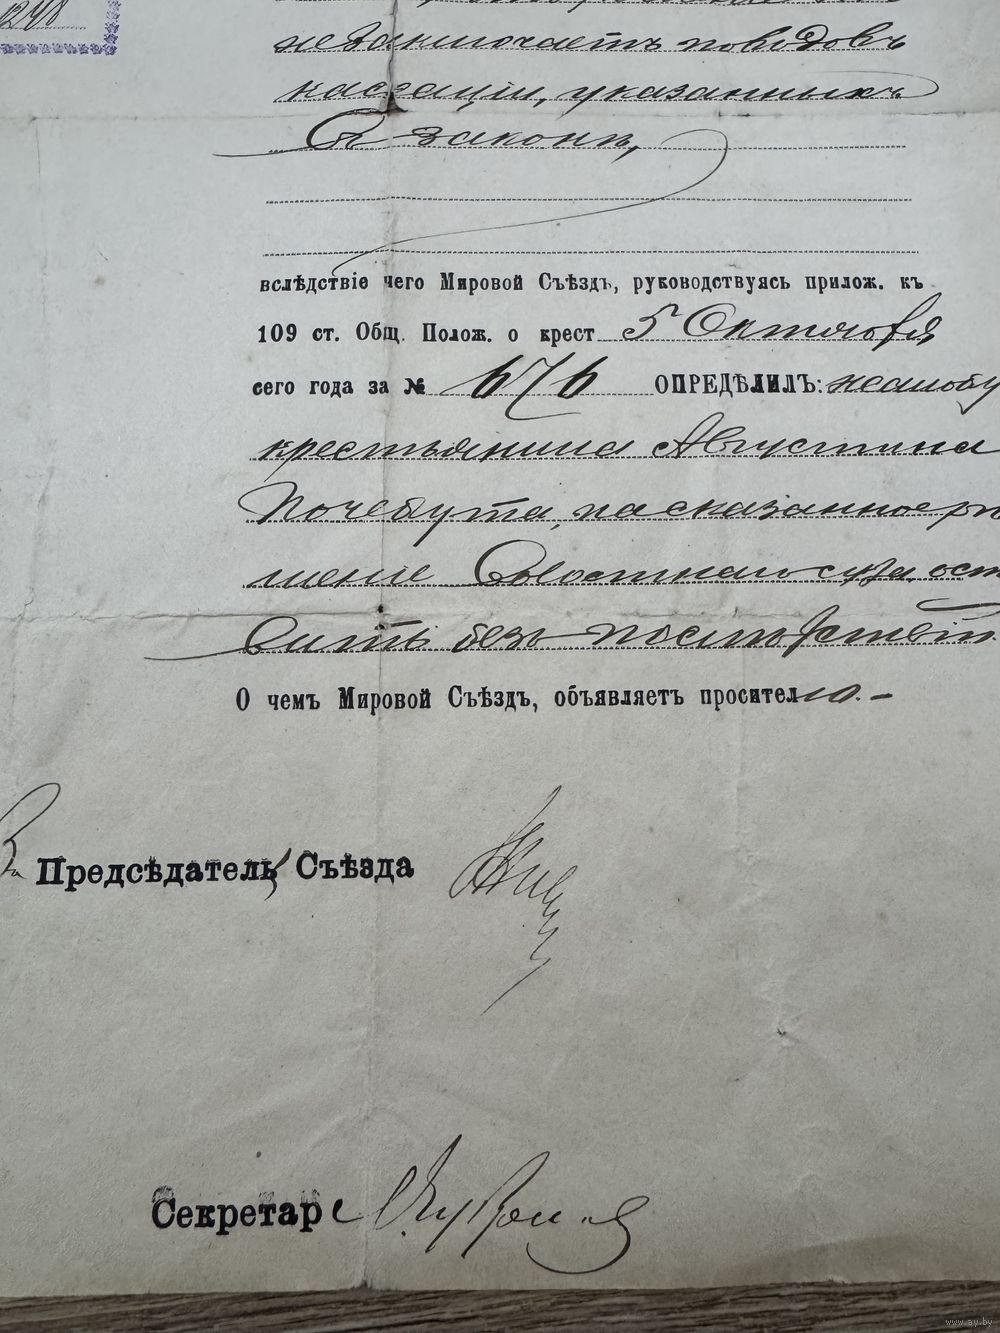 1248
незаключаетъ поводовъ
кассаціи, указанныхъ
въ законѣ,
вслѣдствіе чего Мировой Съѣздъ, руководствуясь прилож. къ
109 ст. Общ. Полож. о крест 5 Октября
сего года за № 676 ОПРЕДѢЛИЛЪ: жалобу
крестьянина Августина
Почебута, на сказанное рѣ
шеніе Волостнаго суда, оста
вить безъ послѣдствій
О чемъ Мировой Съѣздъ, объявляетъ просителю.
За Предсѣдателя Съѣзда
Секретарь
www.ay.by